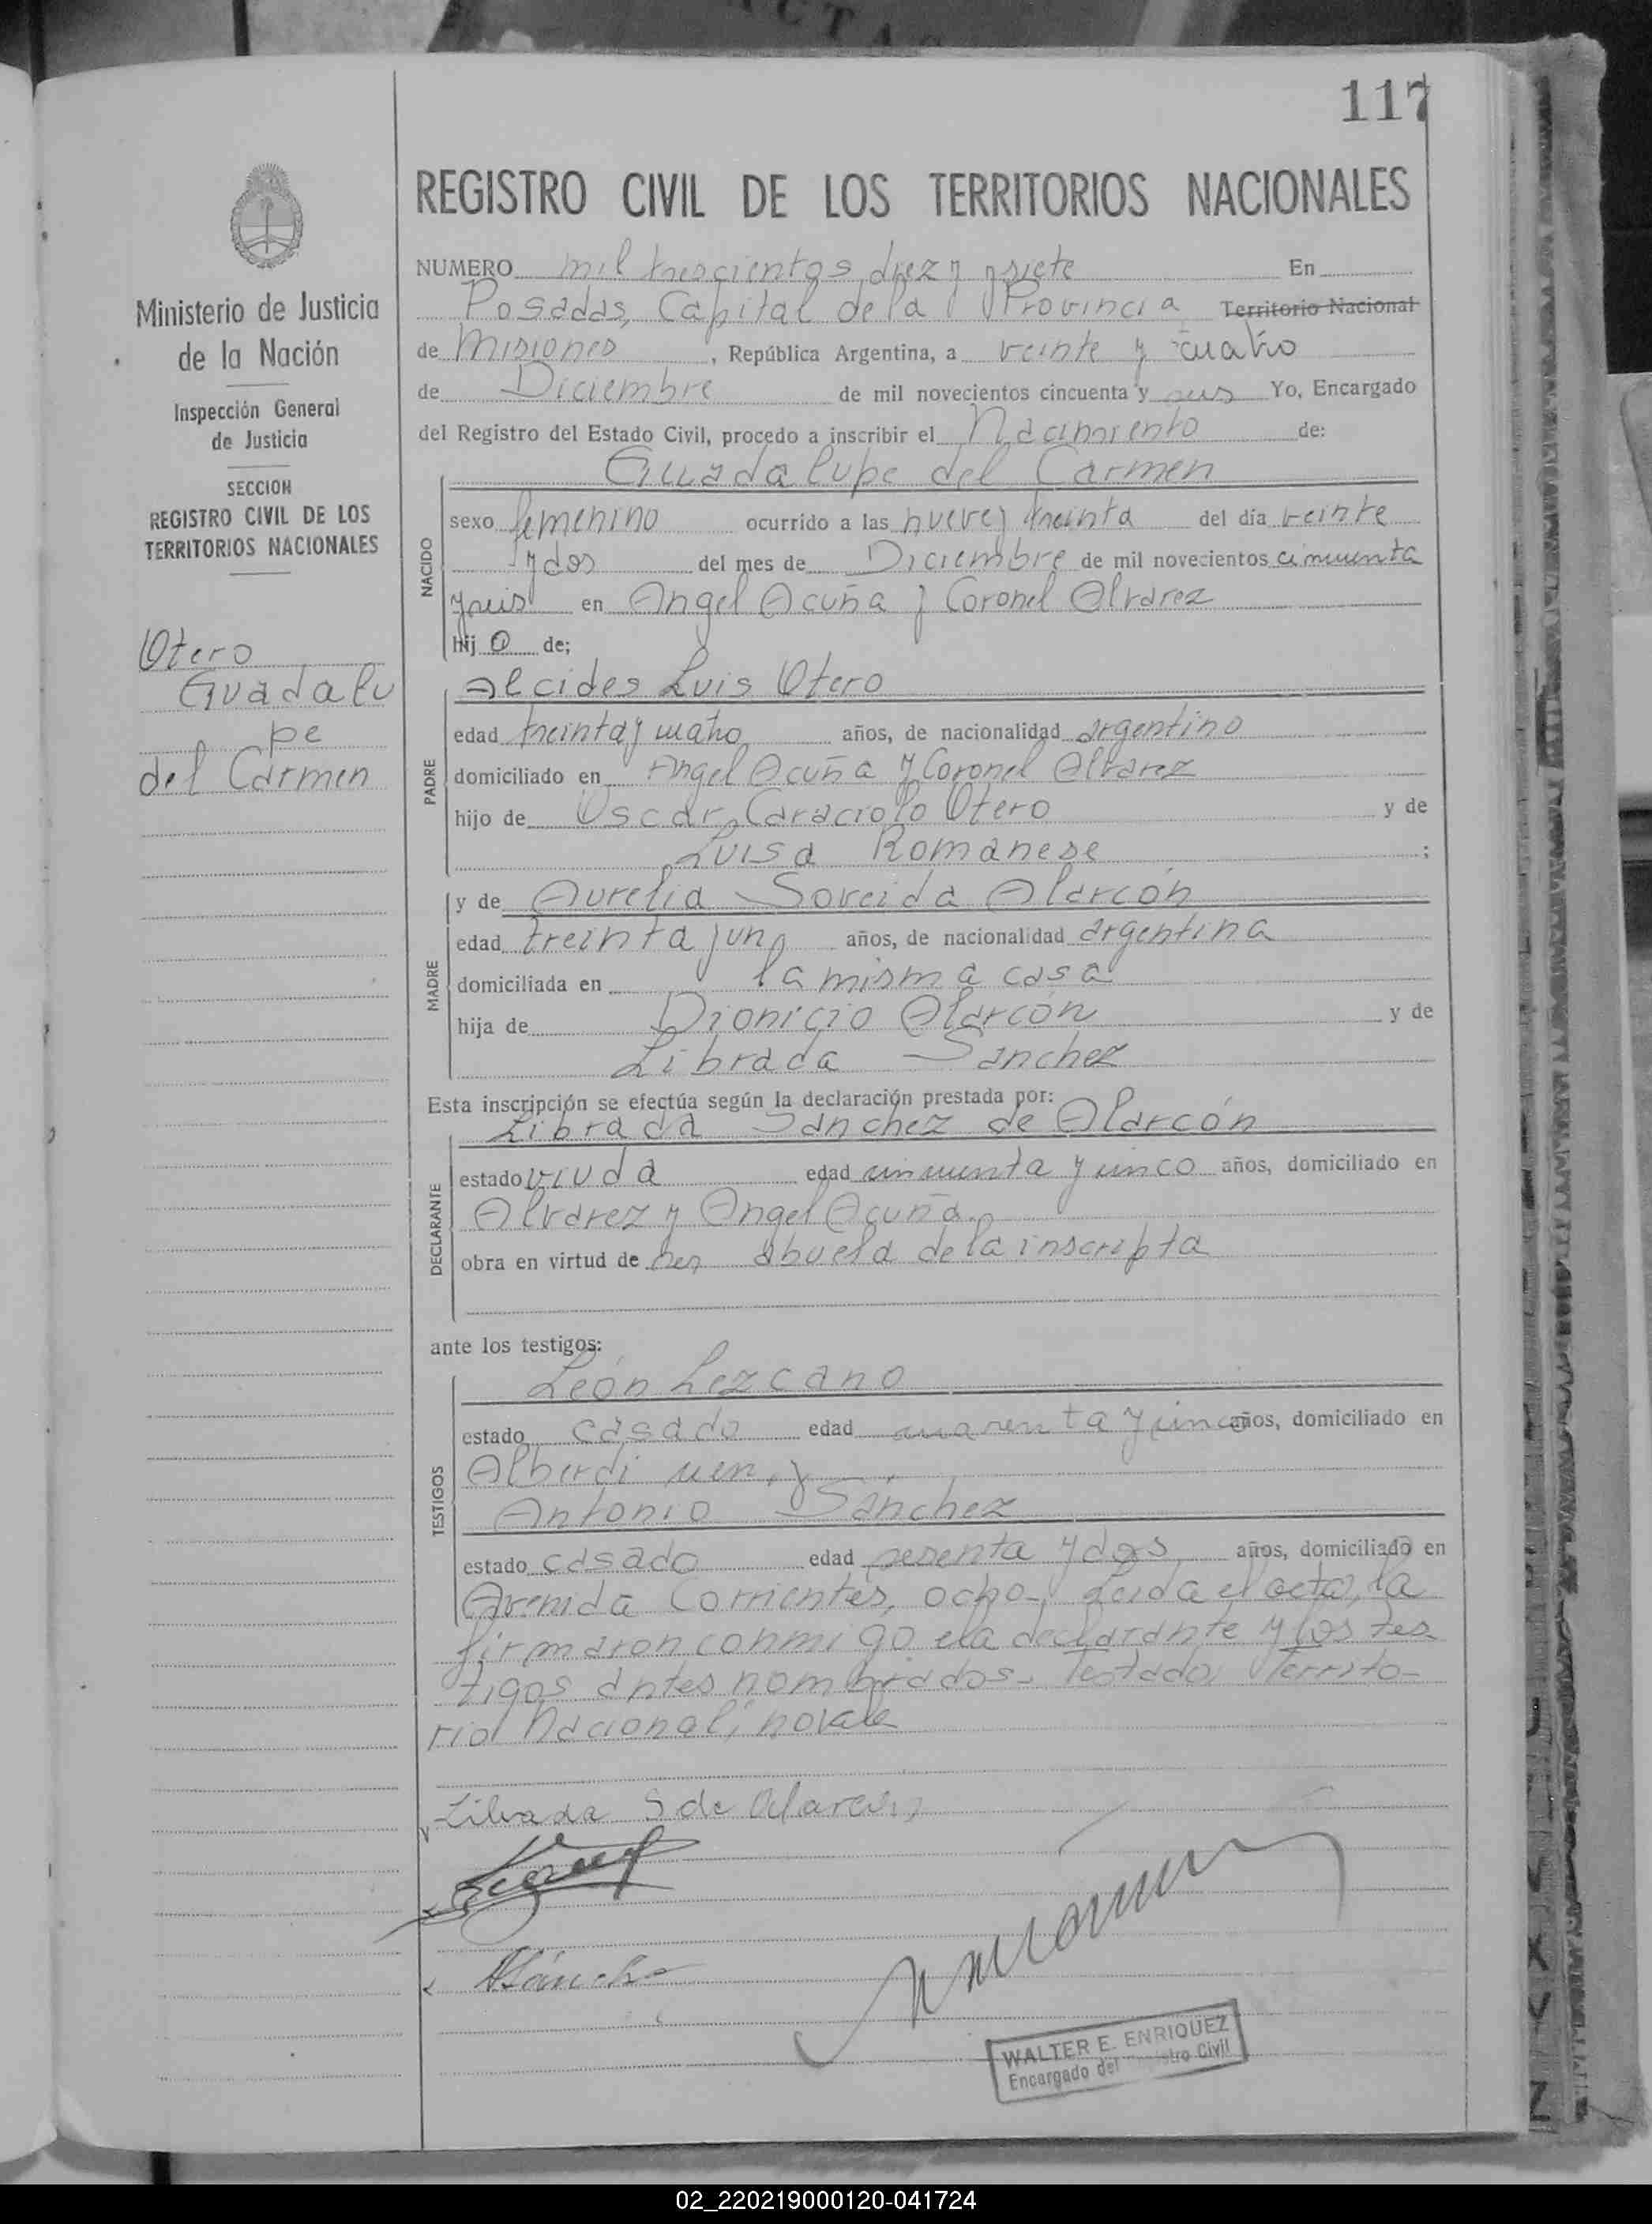 117
REGISTRO CIVIL DE LOS TERRITORIOS NACIONALES
Ministerio de Justicia
de la Nación
Inspección General
de Justicia
SECCION
REGISTRO CIVIL DE LOS
TERRITORIOS NACIONALES
Otero
Guadalu
pe
del Carmen
NUMERO mil trescientos diez y siete En
Posadas, Capital de la Provincia Territorio Nacional
de Misiones, República Argentina, a veinte y cuatro
de Diciembre de mil novecientos cincuenta y seis Yo, Encargado
del Registro del Estado Civil, procedo a inscribir el Nacimiento de:
Guadalupe del Carmen
NACIDO
sexo femenino ocurrido a las nueve y treinta del día veinte
y dos del mes de Diciembre de mil novecientos cincuenta
y seis en Angel Acuña y Coronel Alvarez
hij a de;
PADRE
Alcides Luis Otero
edad treinta y cuatro años, de nacionalidad argentino
domiciliado en Angel Acuña y Coronel Alvarez
hijo de Oscar Caraciolo Otero y de
Luisa Romanese ;
MADRE
y de Aurelia Soreida Alarcón
edad treinta y un años, de nacionalidad argentina
domiciliada en la misma casa
hija de Dionicio Alarcón y de
Librada Sanchez
Esta inscripción se efectúa según la declaración prestada por:
Librada Sanchez de Alarcón
DECLARANTE
estado viuda edad cincuenta y cinco años, domiciliado en
Alvarez y Angel Acuña.
obra en virtud de ser abuela de la inscripta
ante los testigos:
TESTIGOS
León Lezcano
estado casado edad cuarenta y cinco años, domiciliado en
Alberdi cien, y
Antonio Sánchez
estado casado edad sesenta y dos años, domiciliado en
Avenida Corrientes, ocho- Leida el acta, la
firmaron conmigo la declarante y los tes
tigos antes nombrados- Testado, Territo-
rio Nacional, no vale
Librada S de Alarcón
ASánchez
WALTER E. ENRIQUEZ
Encargado del Registro Civil
02_220219000120-041724